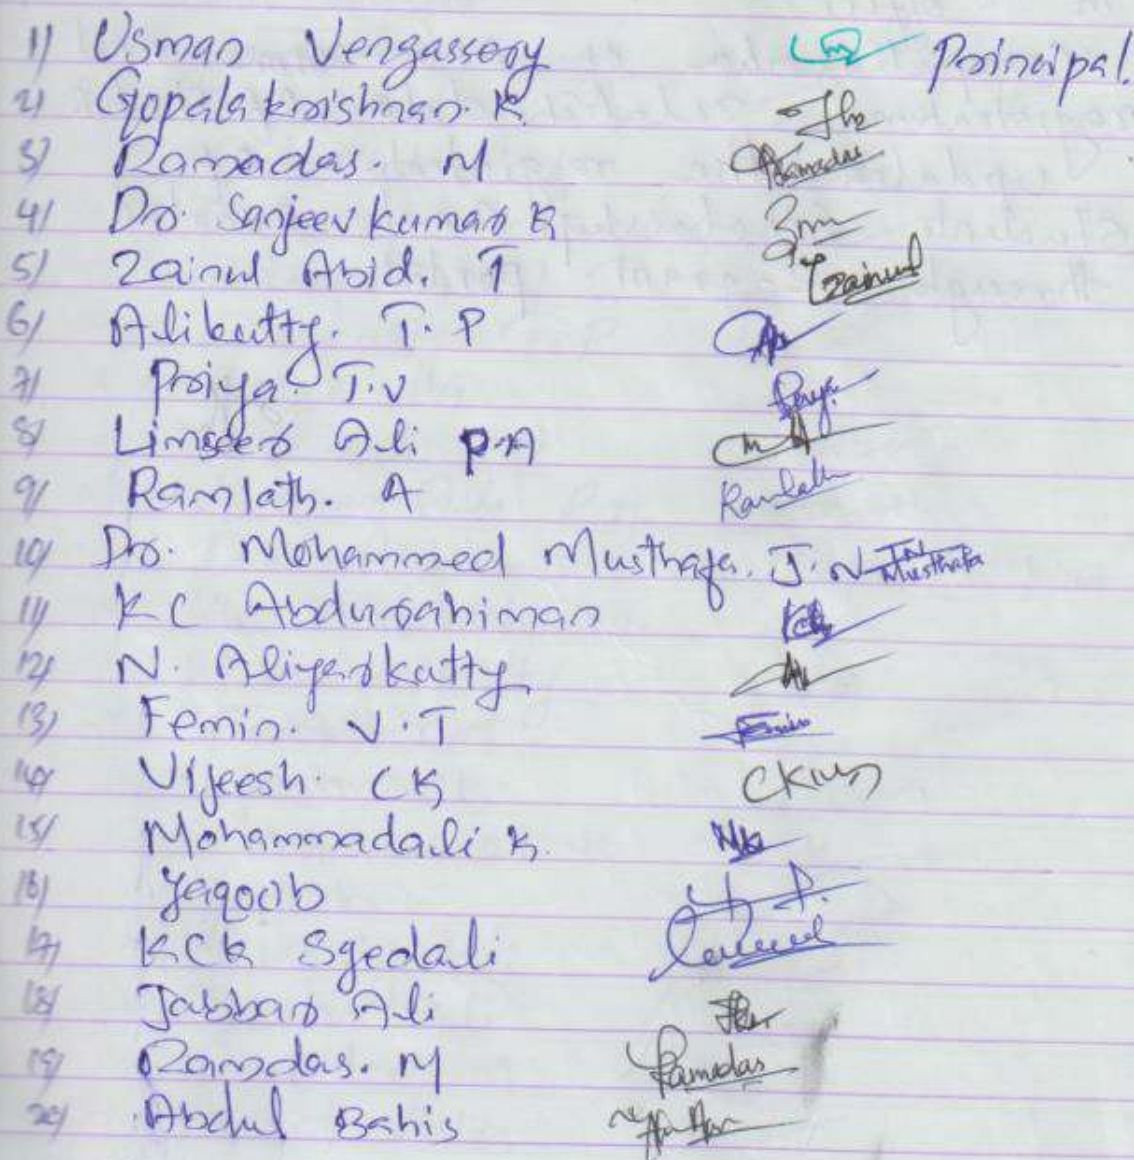 1) Usman Vengassery Principal.
2) Gopalakrishnan. K.
3) Ramadas. M Ramadas
4) Dr. Sanjeevkumar K
5) Zainul Abid. T Zainul
6) Alikutty. T. P
7) Priya. T.V Priya
8) Limseer Ali P.A
9) Ramlath. A Ramlath
10) Dr. Mohammed Musthafa. J. N JN Musthafa
11) KC Abdurahiman
12) N. Aliyarkutty
13) Femin. V. T Femin
14) Vijeesh. CK
15) Mohammadali K.
16) Yaqoob
17) KCK Syedali
18) Jabbar Ali
19) Ramdas. M Ramdas
20) Abdul Bahis